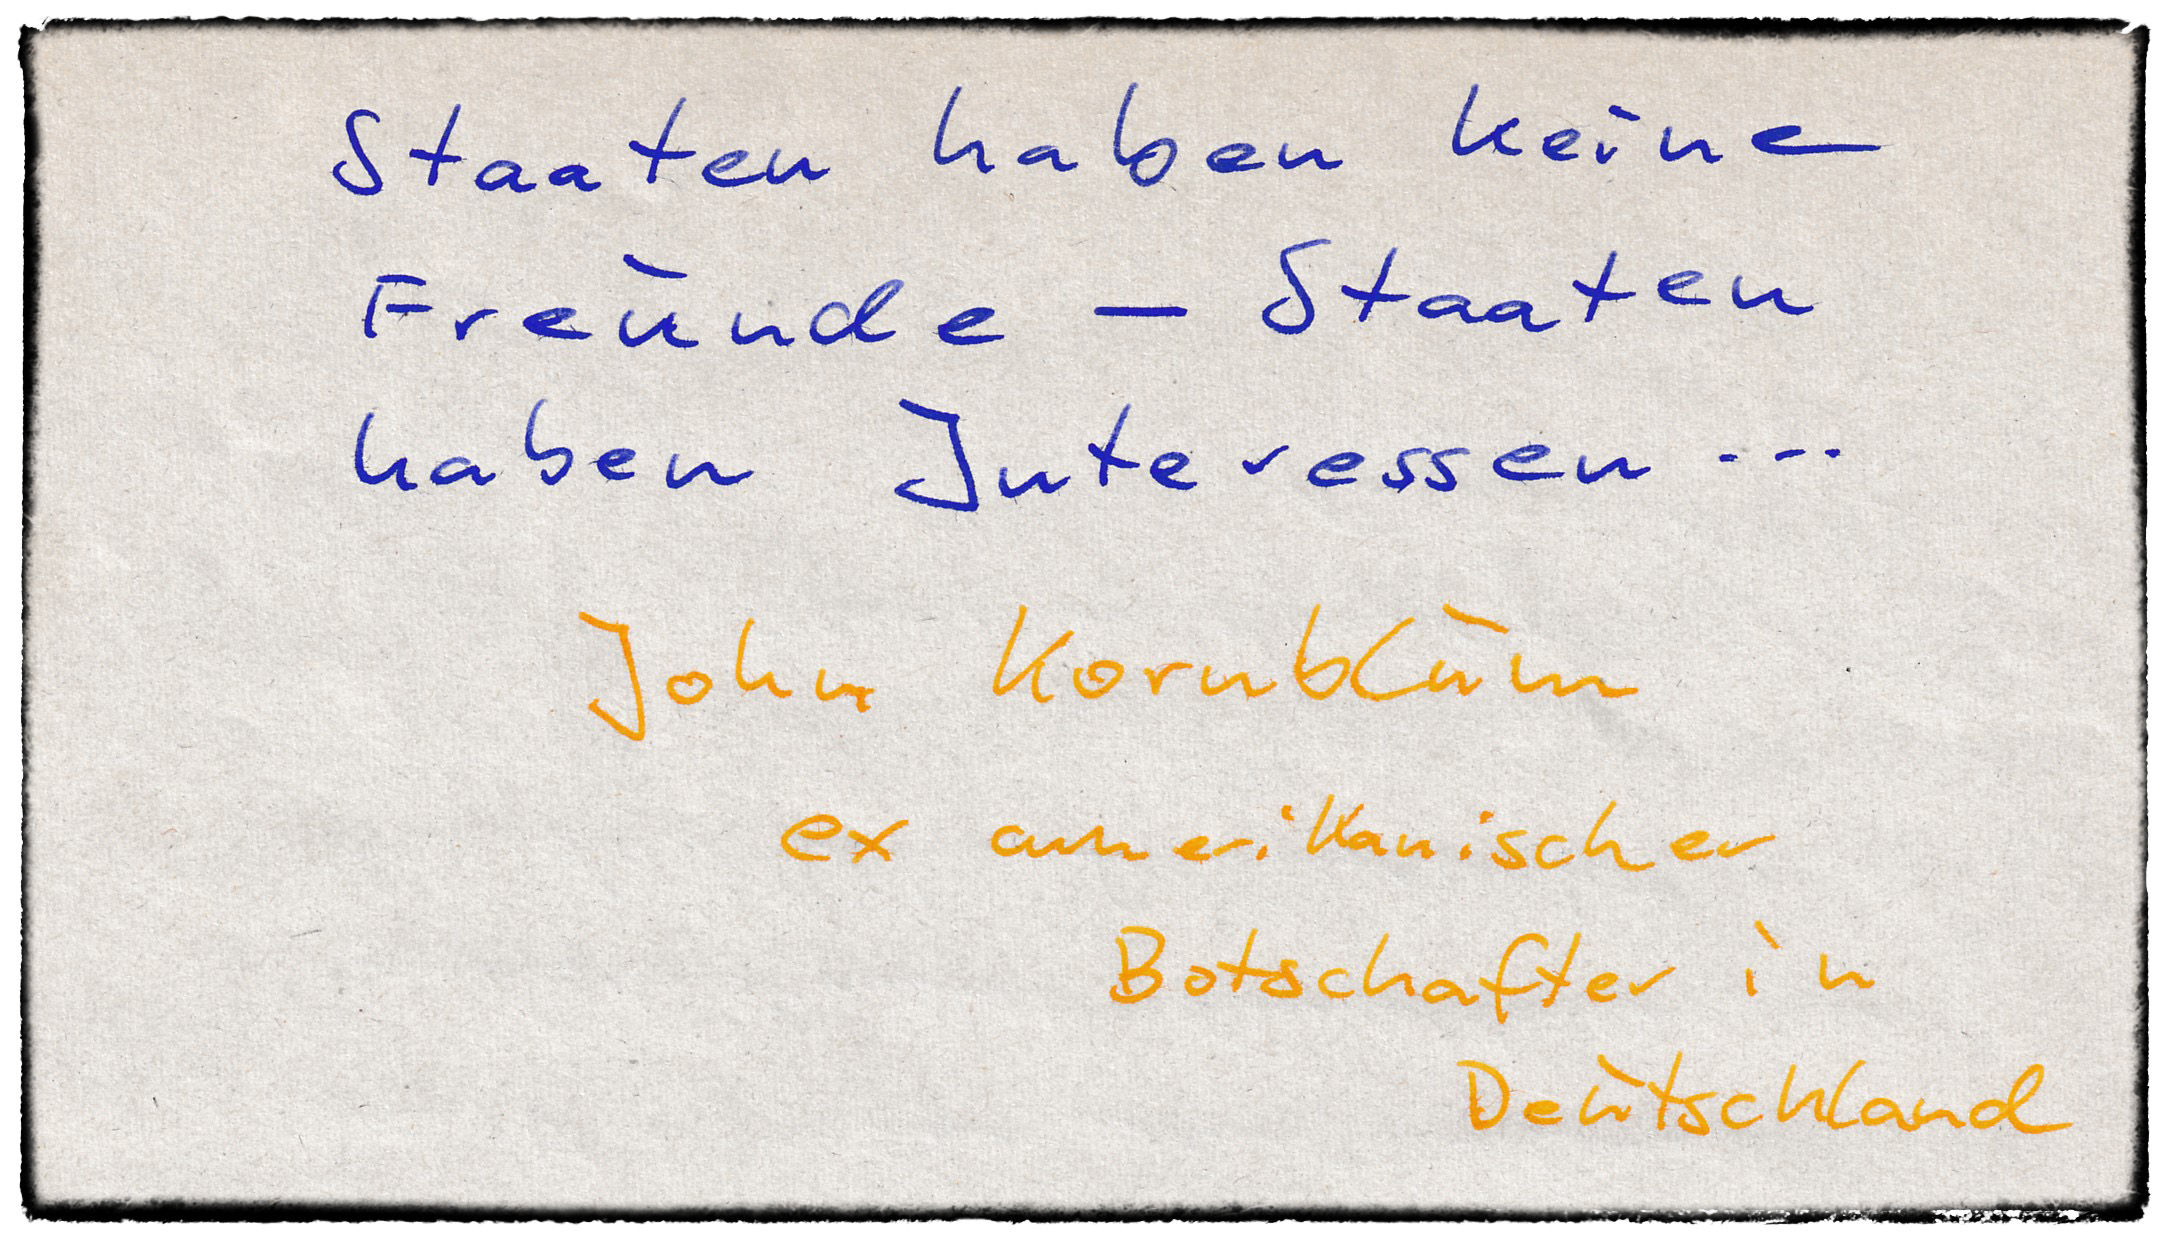 Staaten haben keine
Freunde – Staaten
haben Interessen...
John Kornblum
ex amerikanischer
Botschafter in
Deutschland